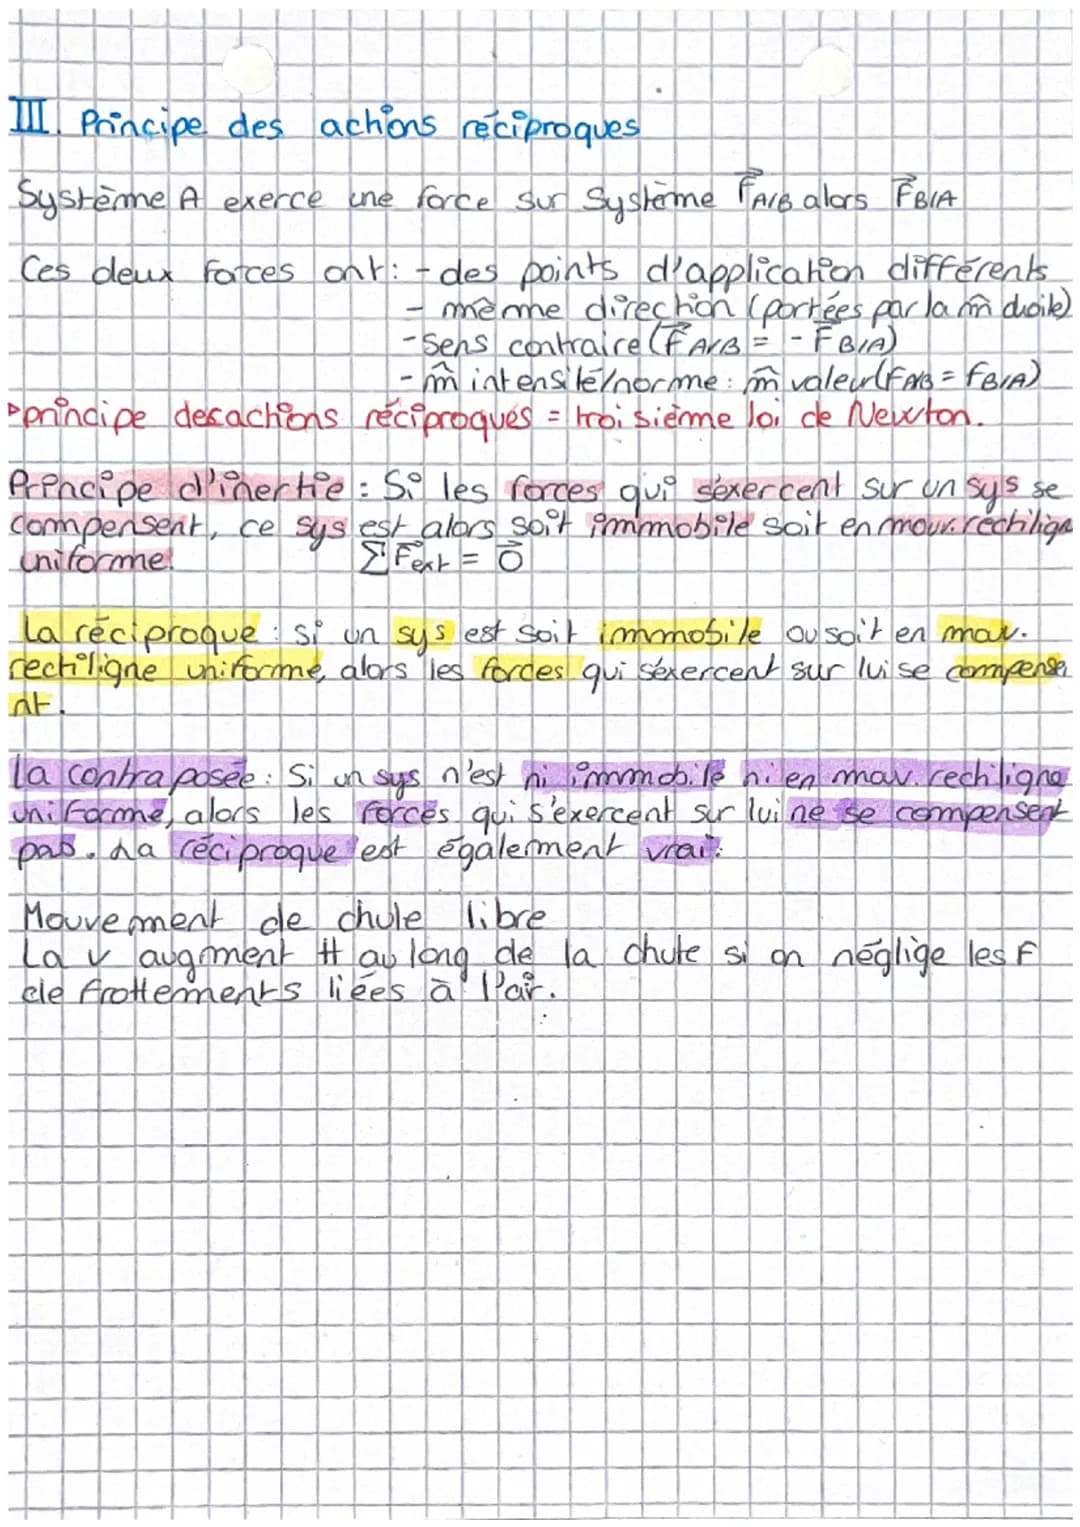 III. Principe des actions réciproques
Système A exerce une force sur Système F⃗A/B alors F⃗B/A
Ces deux forces ont: - des points d'application différents
- même direction (portées par la m̂ droite)
- Sens contraire (F⃗A/B = - F⃗B/A)
- m̂ intensité/norme : m̂ valeur (FA/B = FB/A)
▹principe des actions réciproques = troisième loi de Newton.
Principe d'inertie : Si les forces qui s'exercent sur un sys se
compensent, ce sys est alors soit immobile soit en mouv. rectiligne
uniforme. ΣF⃗ext = 0⃗
La réciproque : si un sys est soit immobile ou soit en mouv.
rectiligne uniforme, alors les forces qui s'exercent sur lui se compense
nt.
La contraposée : Si un sys n'est ni immobile ni en mouv. rectiligne
uniforme, alors les forces qui s'exercent sur lui ne se compensent
pas. La réciproque est également vrai.
Mouvement de chute libre
La v augment tt au long de la chute si on néglige les F
de frottements liées à l'air.